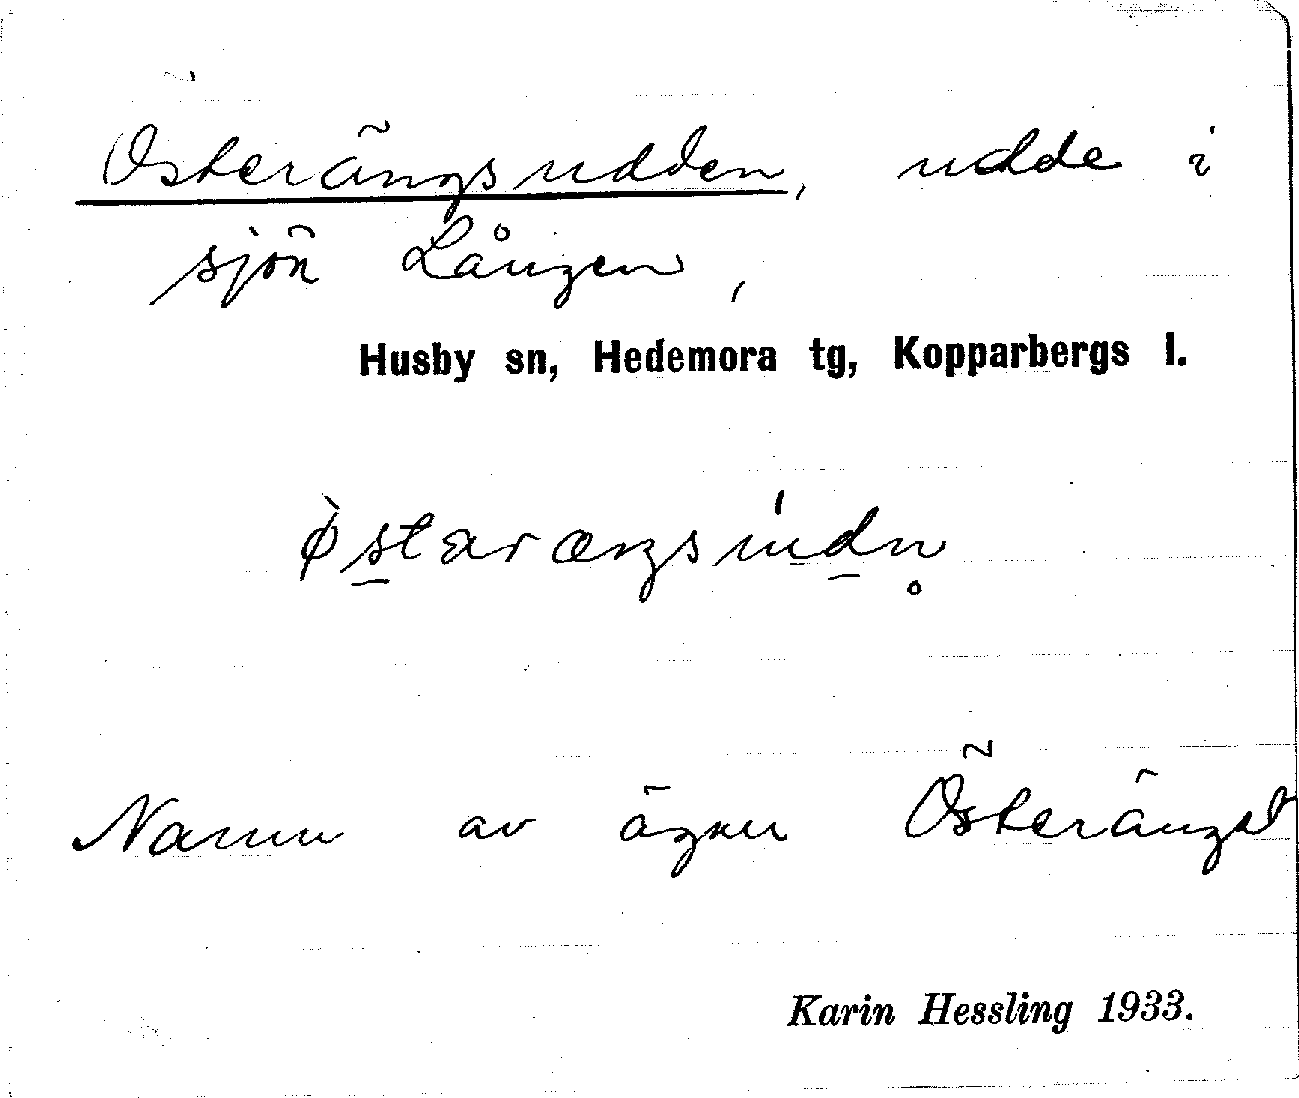 Österängsudden, udde i
sjön Lången,
Husby sn, Hedemora tg, Kopparbergs l.
Namn av ägan Österängst
Karin Hessling 1933.